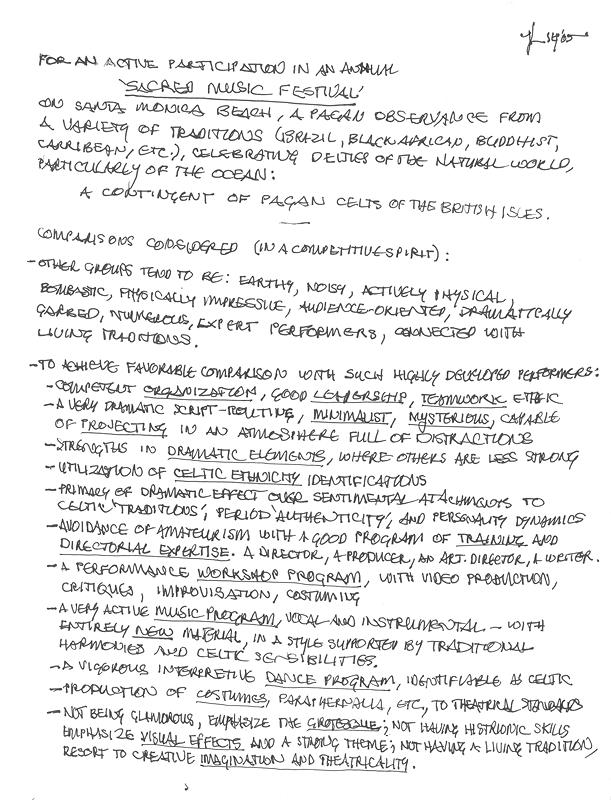 FOR AN ACTIVE PARTICIPATION IN AN ANNUAL
'SACRED MUSIC FESTIVAL'
ON SANTA MONICA BEACH, A PAGAN OBSERVANCE FROM
A VARIETY OF TRADITIONS (BRAZIL, BLACK AFRICAN, BUDDHIST,
CARRIBEAN, ETC.), CELEBRATING DEITIES OF THE NATURAL WORLD,
PARTICULARLY OF THE OCEAN:
A CONTINGENT OF PAGAN CELTS OF THE BRITISH ISLES.
COMPARISONS CONSIDERED (IN A COMPETITIVE SPIRIT):
- OTHER GROUPS TEND TO BE: EARTHY, NOISY, ACTIVELY PHYSICAL,
BOMBASTIC, PHYSICALLY IMPRESSIVE, AUDIENCE-ORIENTED, DRAMATICALLY
GARBED, NUMEROUS, EXPERT PERFORMERS, CONNECTED WITH
LIVING TRADITIONS.
- TO ACHIEVE FAVORABLE COMPARISON WITH SUCH HIGHLY DEVELOPED PERFORMERS:
- COMPETENT ORGANIZATION, GOOD LEADERSHIP, TEAMWORK ETHIC
- A VERY DRAMATIC SCRIPT-ROUTINE, MINIMALIST, MYSTERIOUS, CAPABLE
OF PROJECTING IN AN ATMOSPHERE FULL OF DISTRACTIONS
- STRENGTHS IN DRAMATIC ELEMENTS, WHERE OTHERS ARE LESS STRONG
- UTILIZATION OF CELTIC ETHNICITY IDENTIFICATIONS
- PRIMACY OF DRAMATIC EFFECT OVER SENTIMENTAL ATTACHMENTS TO
CELTIC 'TRADITIONS', PERIOD 'AUTHENTICITY', AND PERSONALITY DYNAMICS
- AVOIDANCE OF AMATEURISM WITH A GOOD PROGRAM OF TRAINING AND
DIRECTORIAL EXPERTISE. A DIRECTOR, A PRODUCER, AN ART DIRECTOR, A WRITER.
- A PERFORMANCE WORKSHOP PROGRAM, WITH VIDEO PRODUCTION,
CRITIQUES, IMPROVISATION, COSTUMING
- A VERY ACTIVE MUSIC PROGRAM, VOCAL AND INSTRUMENTAL - WITH
ENTIRELY NEW MATERIAL, IN A STYLE SUPPORTED BY TRADITIONAL
HARMONIES AND CELTIC SENSIBILITIES.
- A VIGOROUS INTERPRETIVE DANCE PROGRAM, IDENTIFIABLE AS CELTIC
- PRODUCTION OF COSTUMES, PARAPHERNALIA, ETC., TO THEATRICAL STANDARDS
- NOT BEING GLAMOROUS, EMPHASIZE THE GROTESQUE; NOT HAVING HISTRIONIC SKILLS
EMPHASIZE VISUAL EFFECTS AND A STRONG THEME; NOT HAVING A LIVING TRADITION,
RESORT TO CREATIVE IMAGINATION AND THEATRICALITY.